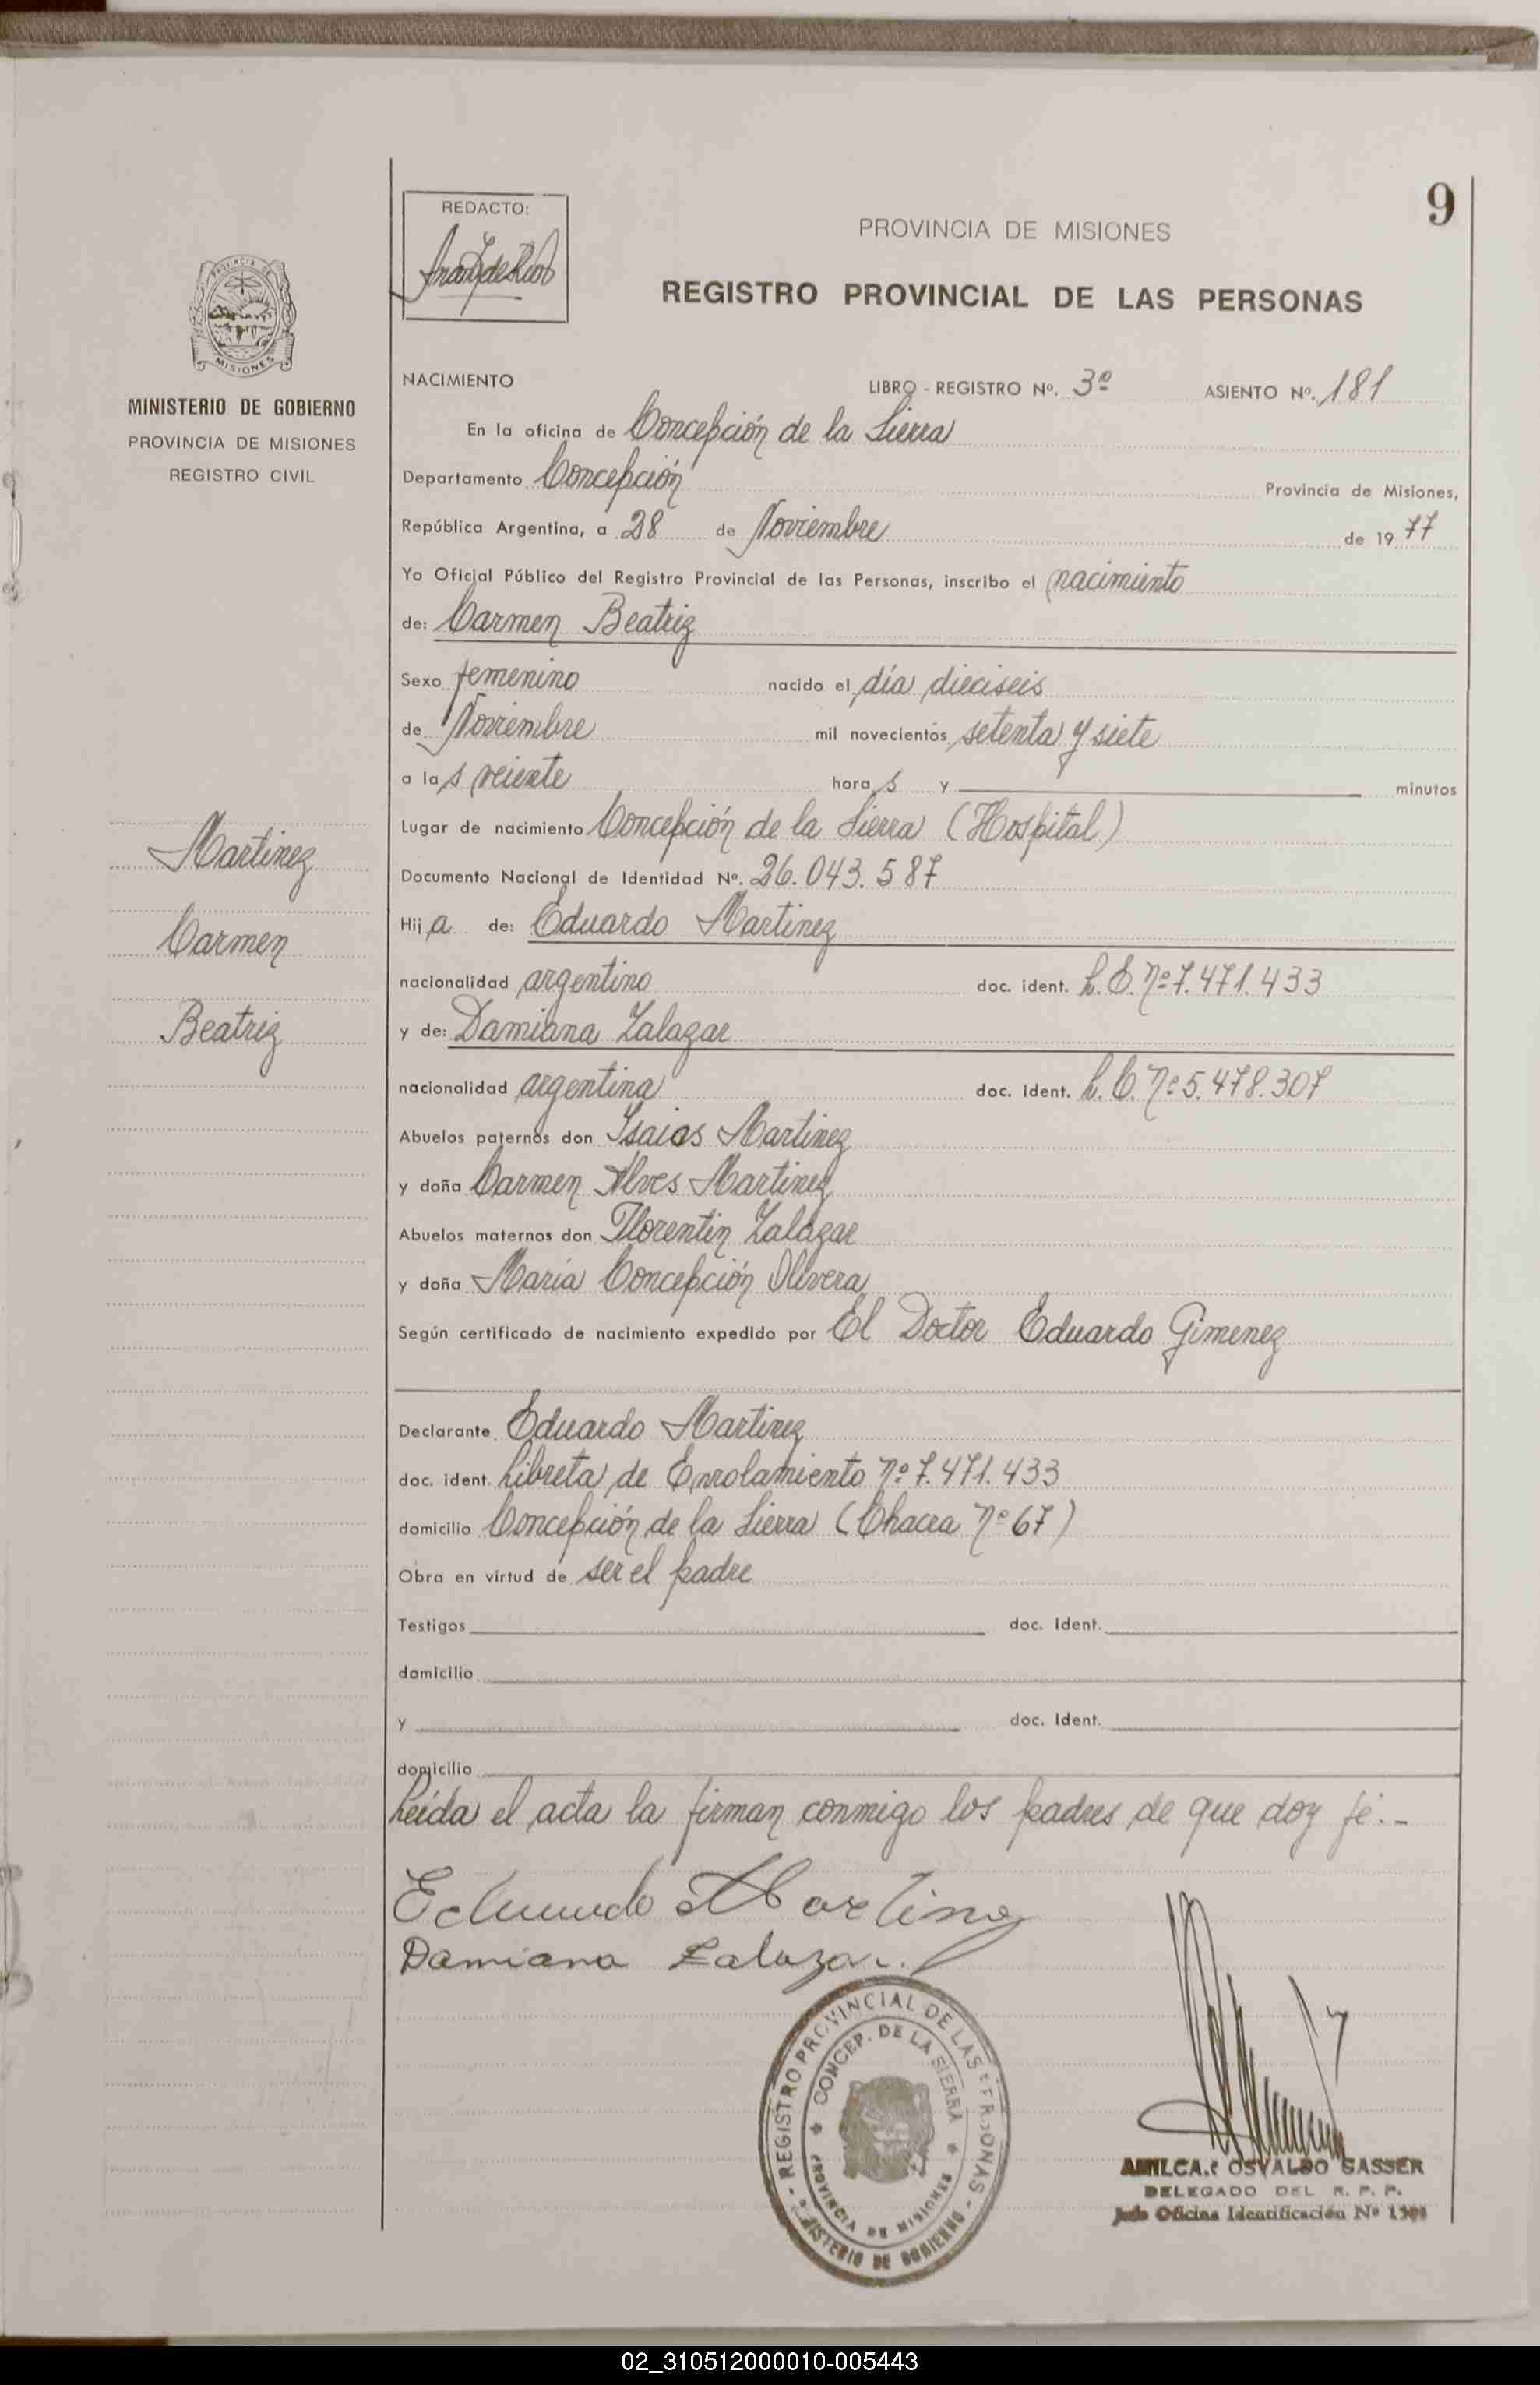 9
REDACTO:
PROVINCIA DE MISIONES
REGISTRO PROVINCIAL DE LAS PERSONAS
PROVINCIA DE
MISIONES
MINISTERIO DE GOBIERNO
PROVINCIA DE MISIONES
REGISTRO CIVIL
NACIMIENTO LIBRO - REGISTRO Nº. 3º ASIENTO Nº. 181
En la oficina de Concepción de la Sierra
Departamento Concepción Provincia de Misiones,
República Argentina, a 28 de Noviembre de 1977
Yo Oficial Público del Registro Provincial de las Personas, inscribo el nacimiento
de: Carmen Beatriz
Sexo femenino nacido el día dieciseis
de Noviembre mil novecientos setenta y siete
a las veinte horas y minutos
Lugar de nacimiento Concepción de la Sierra (Hospital)
Documento Nacional de Identidad Nº. 26.043.587
Hija de: Eduardo Martinez
nacionalidad argentino doc. ident. L.E. Nº 7.471.433
y de: Damiana Zalazar
nacionalidad argentina doc. ident. L.C. Nº 5.478.307
Abuelos paternos don Isaias Martinez
y doña Carmen Alves Martinez
Abuelos maternos don Florentin Zalazar
y doña María Concepción Olivera
Según certificado de nacimiento expedido por El Doctor Eduardo Gimenez
Martinez
Carmen
Beatriz
Declarante Eduardo Martinez
doc. ident. Libreta de Enrolamiento Nº 7.471.433
domicilio Concepción de la Sierra (Chacra Nº 67)
Obra en virtud de ser el padre
Testigos doc. Ident.
domicilio
y doc. Ident.
domicilio
Leída el acta la firman conmigo los padres de que doy fé.-
Damiana Zalazar
REGISTRO PROVINCIAL DE LAS PERSONAS
CONCEP. DE LA SIERRA
PROVINCIA DE MISIONES
MINISTERIO DE GOBIERNO
OSVALDO GASSER
DELEGADO DEL R. P. P.
Jefe Oficina Identificación Nº
02_310512000010-005443